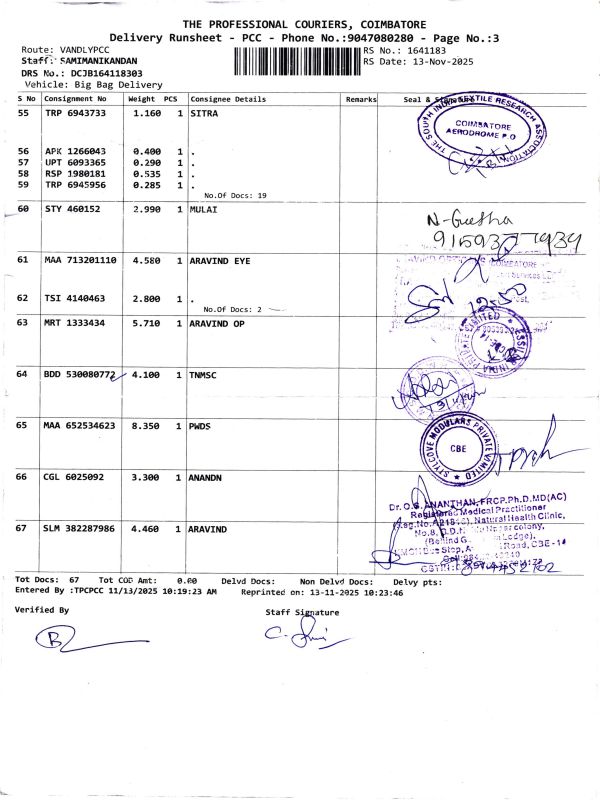 THE PROFESSIONAL COURIERS, COIMBATORE
Delivery Runsheet - PCC - Phone No.:9047080280 - Page No.:3
Route: VANDLYPCC
RS No.: 1641183
Staff: SAMIMANIKANDAN
RS Date: 13-Nov-2025
DRS No.: DCJB164118303
Vehicle: Big Bag Delivery
S No Consignment No Weight PCS Consignee Details Remarks Seal & Signature
55 TRP 6943733 1.160 1 SITRA
THE SOUTH INDIA TEXTILE RESEARCH ASSOCIATION
COIMBATORE
AERODROME P.O
56 APK 1266043 0.400 1 .
57 UPT 6093365 0.290 1 .
58 RSP 1980181 0.535 1 .
59 TRP 6945956 0.285 1 .
No.Of Docs: 19
60 STY 460152 2.990 1 MULAI
N-Geetha
61 MAA 713201110 4.580 1 ARAVIND EYE
COIMBATORE
62 TSI 4140463 2.800 1 .
No.Of Docs: 2
63 MRT 1333434 5.710 1 ARAVIND OP
64 BDD 530080772 4.100 1 TNMSC
65 MAA 652534623 8.350 1 PWDS
STYLCOVE MODULARS PRIVATE LIMITED
CBE
66 CGL 6025092 3.300 1 ANANDN
Dr. O.S. ANANTHAN, FRCP.Ph.D.MD(AC)
Registered Medical Practitioner
Natural Health Clinic,
67 SLM 382287986 4.460 1 ARAVIND
Road, CBE-14
Tot Docs: 67 Tot COD Amt: 0.00 Delvd Docs: Non Delvd Docs: Delvy pts:
Entered By :TPCPCC 11/13/2025 10:19:23 AM Reprinted on: 13-11-2025 10:23:46
Verified By Staff Signature